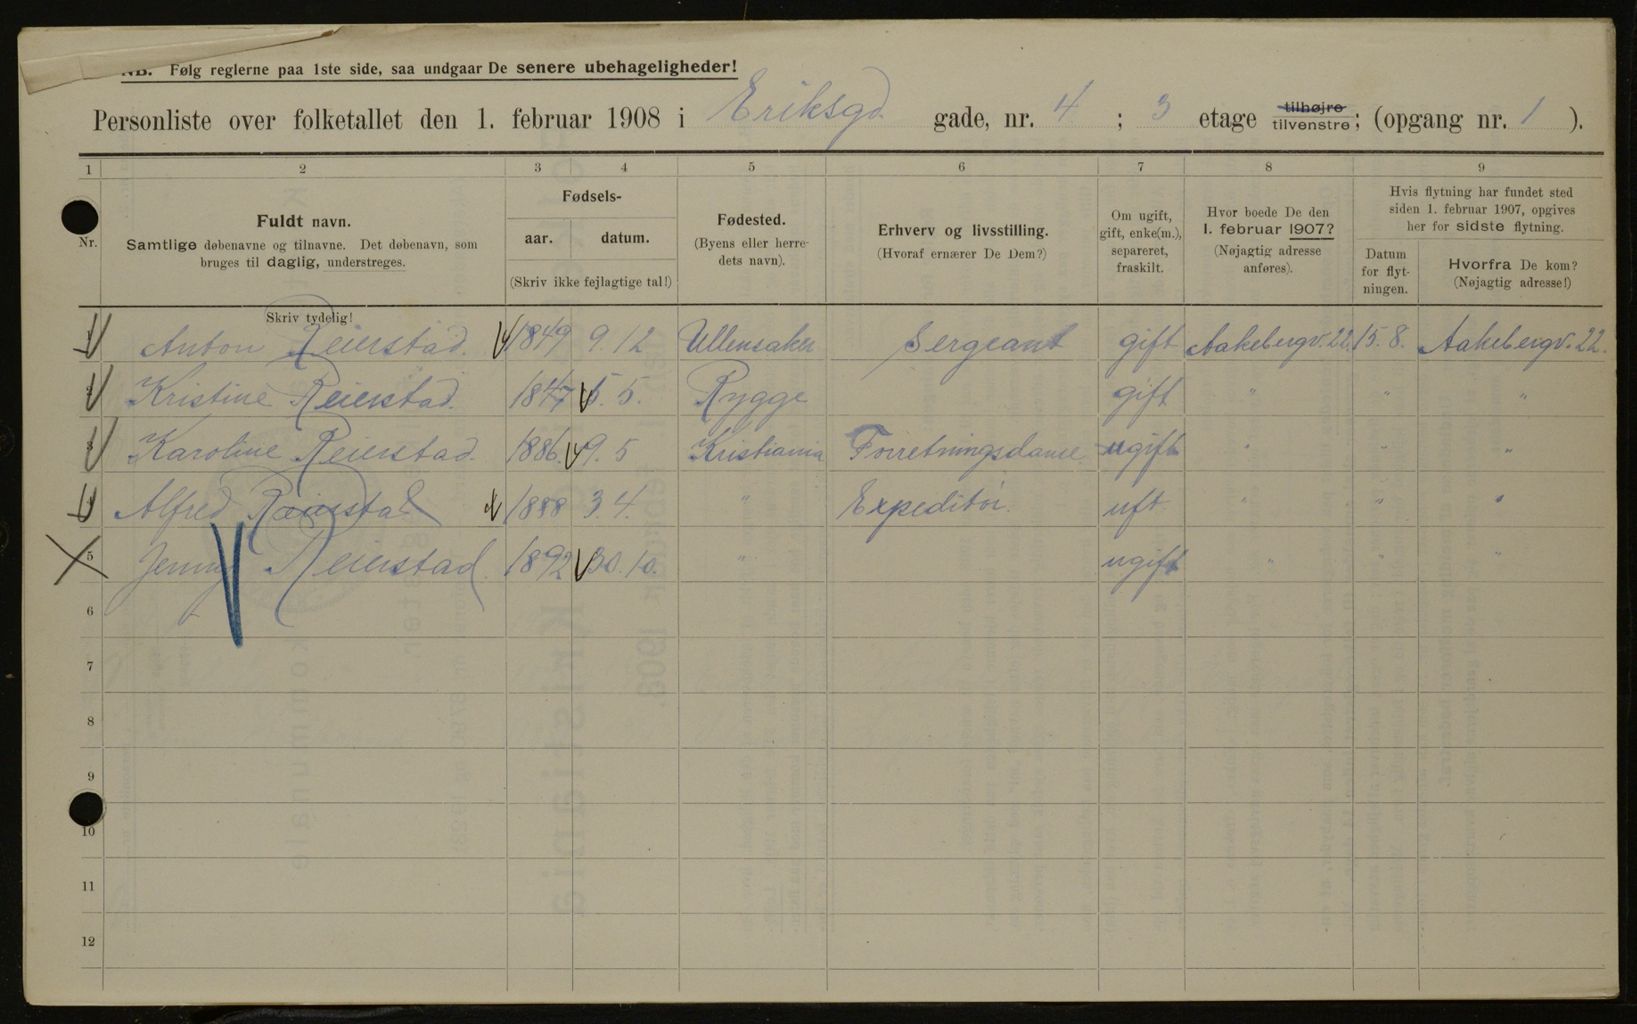 NB. Følg reglerne paa 1ste side, saa undgaar De senere ubehageligheder!
Personliste over folketallet den 1. februar 1908 i Eriksgd. gade, nr. 4 ; 3 etage tilhøjre tilvenstre; (opgang nr. 1 ).
1 2 3 4 5 6 7 8 9
Nr.
Fuldt navn.
Samtlige døbenavne og tilnavne. Det døbenavn, som
bruges til daglig, understreges.
Skriv tydelig!
Fødsels-
aar. datum.
(Skriv ikke fejlagtige tal!)
Fødested.
(Byens eller herre-
dets navn).
Erhverv og livsstilling.
(Hvoraf ernærer De Dem?)
Om ugift,
gift, enke(m.),
separeret,
fraskilt.
Hvor boede De den
1. februar 1907?
(Nøjagtig adresse
anføres).
Hvis flytning har fundet sted
siden 1. februar 1907, opgives
her for sidste flytning.
Datum
for flyt-
ningen.
Hvorfra De kom?
(Nøjagtig adresse!)
1 Anton Reierstad. 1849 9.12 Ullensaker Sergeant gift Aakebergv.22. 15.8. Aakebergv.22.
2 Kristine Reierstad. 1847 5.5. Rygge gift " " "
3 Karoline Reierstad. 1886. 9.5 Kristiania Forretningsdame. ugift " " "
4 Alfred Reierstad 1888 3.4. " Expeditør. uft " " "
5 Jenny Reierstad. 1892 30.10. " ugift " " "
6
7
8
9
10
11
12